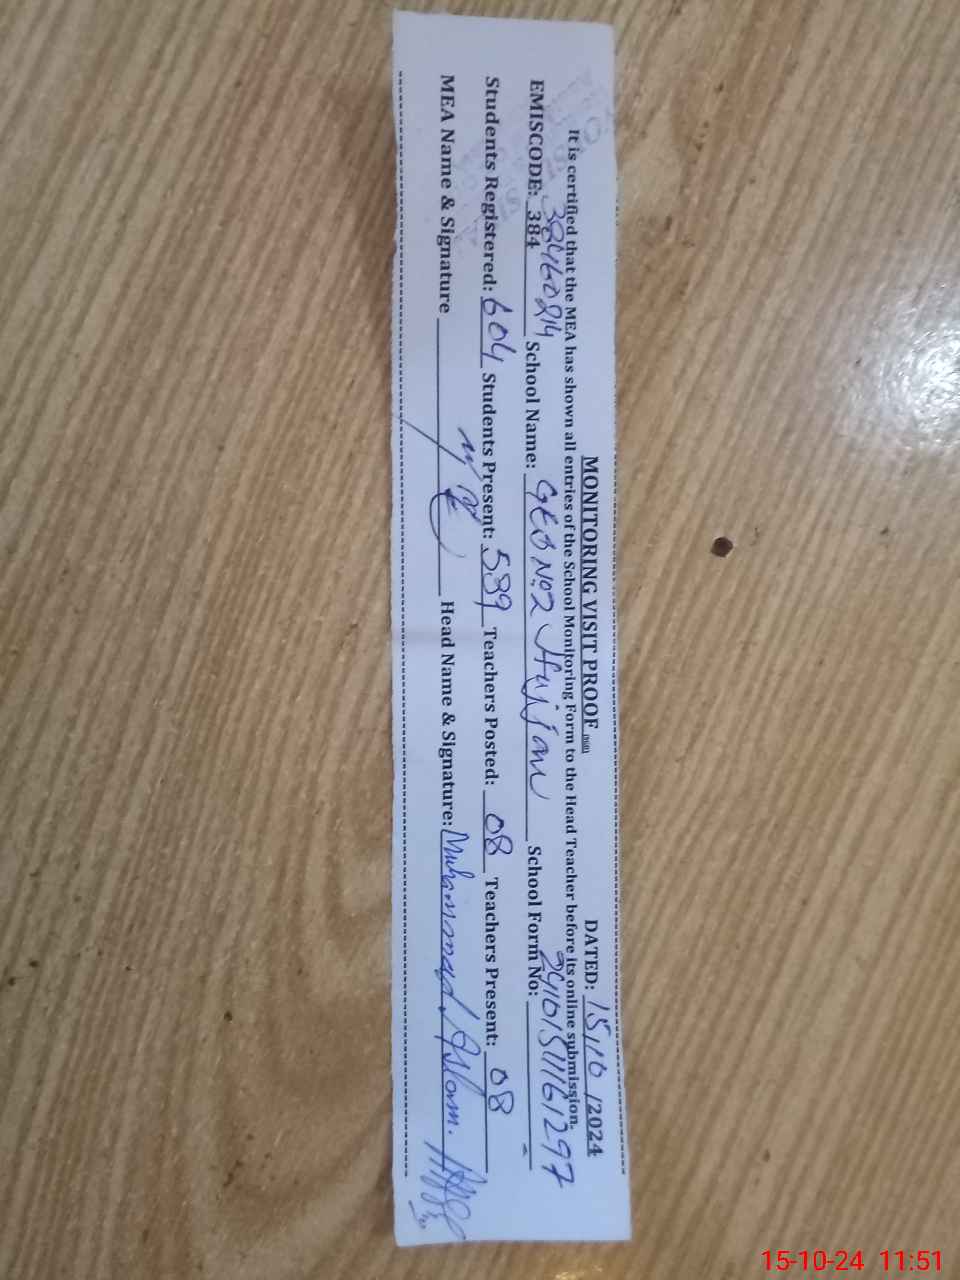 MONITORING VISIT PROOF DATED: 15/10/2024
It is certified that the MEA has shown all entries of the School Monitoring Form to the Head Teacher before its online submission.
EMISCODE: 384 38460214 School Name: GES No.2 Hujjan School Form No: 24101511161297
Students Registered: 604 Students Present: 539 Teachers Posted: 08 Teachers Present: 08
MEA Name & Signature Head Name & Signature: Muhammad Aslam.
15-10-24 11:51